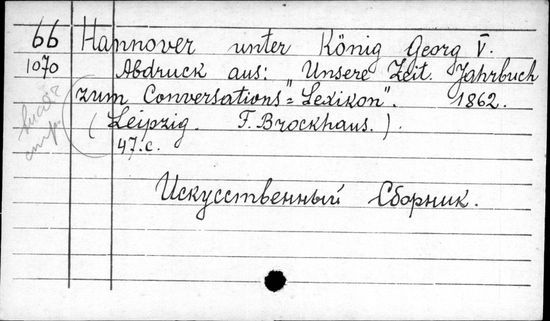 66 Hannover unter König Georg V.
1070 Abdruck aus: Unsere Zeit. Jahrbuch
zum Conversations"=Lexikon". 1862.
(Leipzig. F. Brockhaus.)
47.c.
Искусственный Сборник.